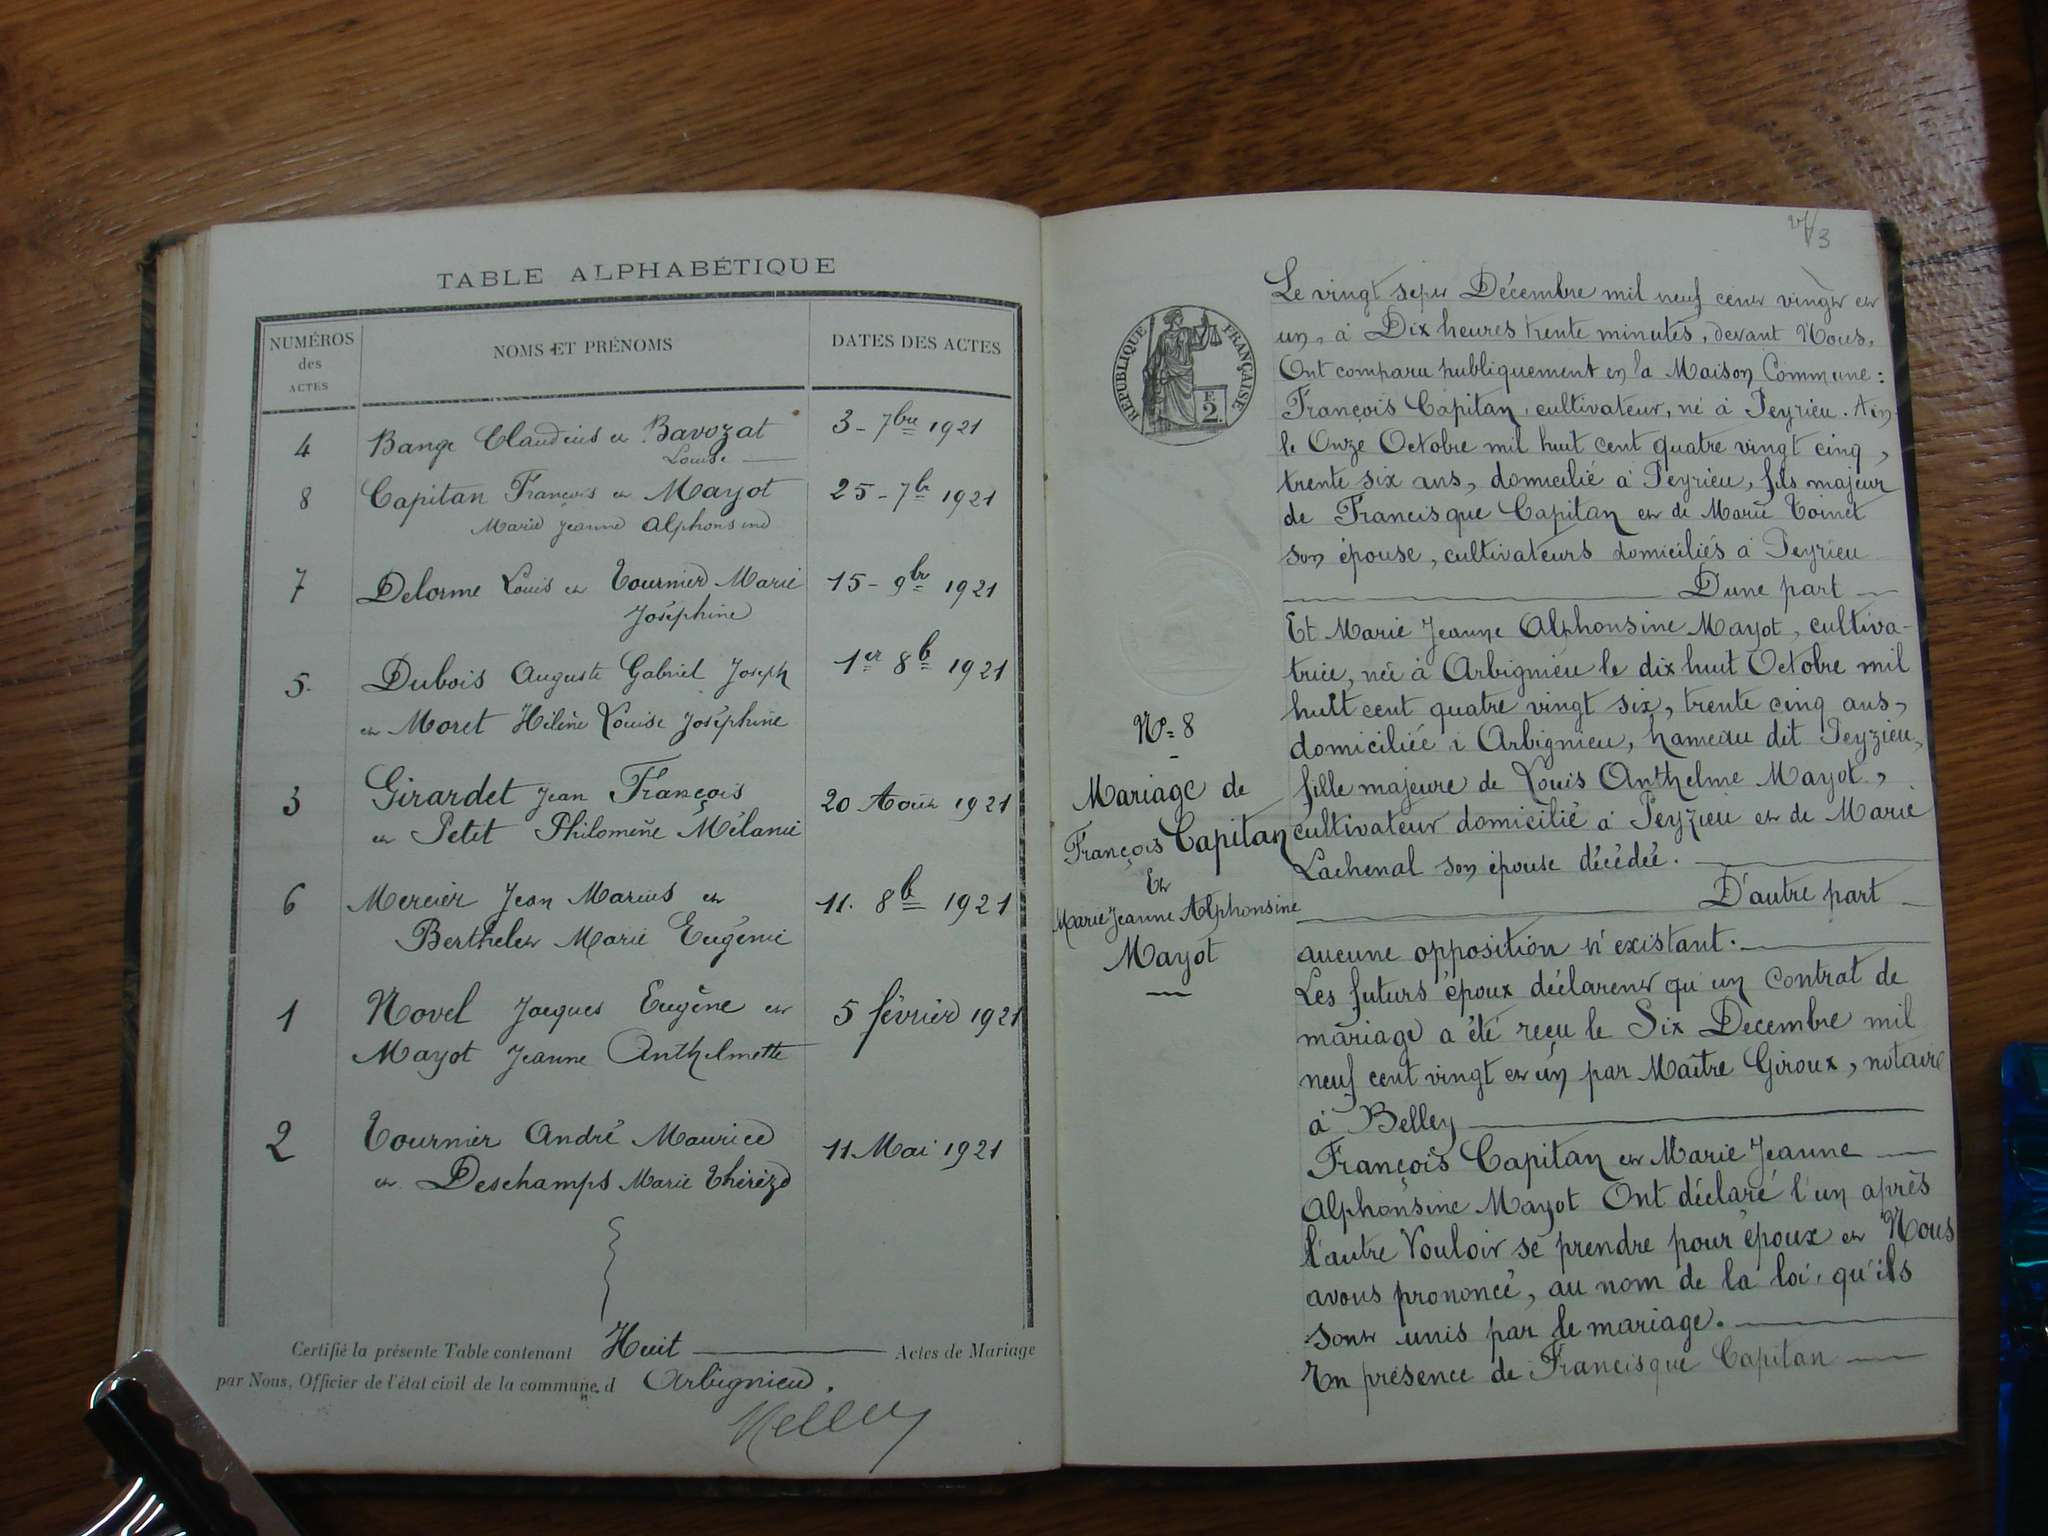 TABLE ALPHABÉTIQUE
NUMÉROS
des
ACTES
NOMS ET PRÉNOMS
DATES DES ACTES
4 Bange Claudius et Bavozat 3 - 7bre 1921
Louise
8 Capitan François et Mayot 25 - 7bre 1921
Marie Jeanne Alphonsine
7 Delorme Louis et Tournier Marie 15 - 9bre 1921
Joséphine
5. Dubois Auguste Gabriel Joseph 1er 8b 1921
et Moret Hélène Louise Joséphine
3 Girardet Jean François 20 Août 1921
et Petit Philomène Mélanie
6 Mercier Jean Marius et 11. 8b 1921
Berthelet Marie Eugénie
1 Novel Jacques Eugène et 5 février 1921
Mayot Jeanne Anthelmette
2 Tournier André Maurice 11 Mai 1921
et Deschamps Marie Thérèze
Certifié la présente Table contenant Huit Actes de Mariage
par Nous, Officier de l'état civil de la commune d Arbignieu.
3
RÉPUBLIQUE FRANÇAISE
F.
2.
Nº 8
Mariage de
François Capitan
Et
Marie Jeanne Alphonsine
Mayot
Le vingt sept Décembre mil neuf cent vingt et
un, à Dix heures trente minutes, devant Nous,
Ont comparu publiquement en la Maison Commune :
François Capitan, cultivateur, né à Peyrieu. Ain
le Onze Octobre mil huit cent quatre vingt cinq,
trente six ans, domicilié à Peyrieu, fils majeur
de Francisque Capitan et de Marie Toinet
son épouse, cultivateurs domiciliés à Peyrieu
D'une part
Et Marie Jeanne Alphonsine Mayot, cultiva-
trice, née à Arbignieu le dix huit Octobre mil
huit cent quatre vingt six, trente cinq ans,
domiciliée à Arbignieu, hameau dit Peyzieu,
fille majeure de Louis Anthelme Mayot,
cultivateur domicilié à Peyzieu et de Marie
Lachenal son épouse décédée.
D'autre part
aucune opposition n'existant.
Les futurs époux déclarent qu'un contrat de
mariage a été reçu le Six Decembre mil
neuf cent vingt et un par Maître Giroux, notaire
à Belley
François Capitan et Marie Jeanne
Alphonsine Mayot Ont déclaré l'un après
l'autre Vouloir se prendre pour époux et Nous
avons prononcé, au nom de la loi, qu'ils
sont unis par le mariage.
En présence de Francisque Capitan